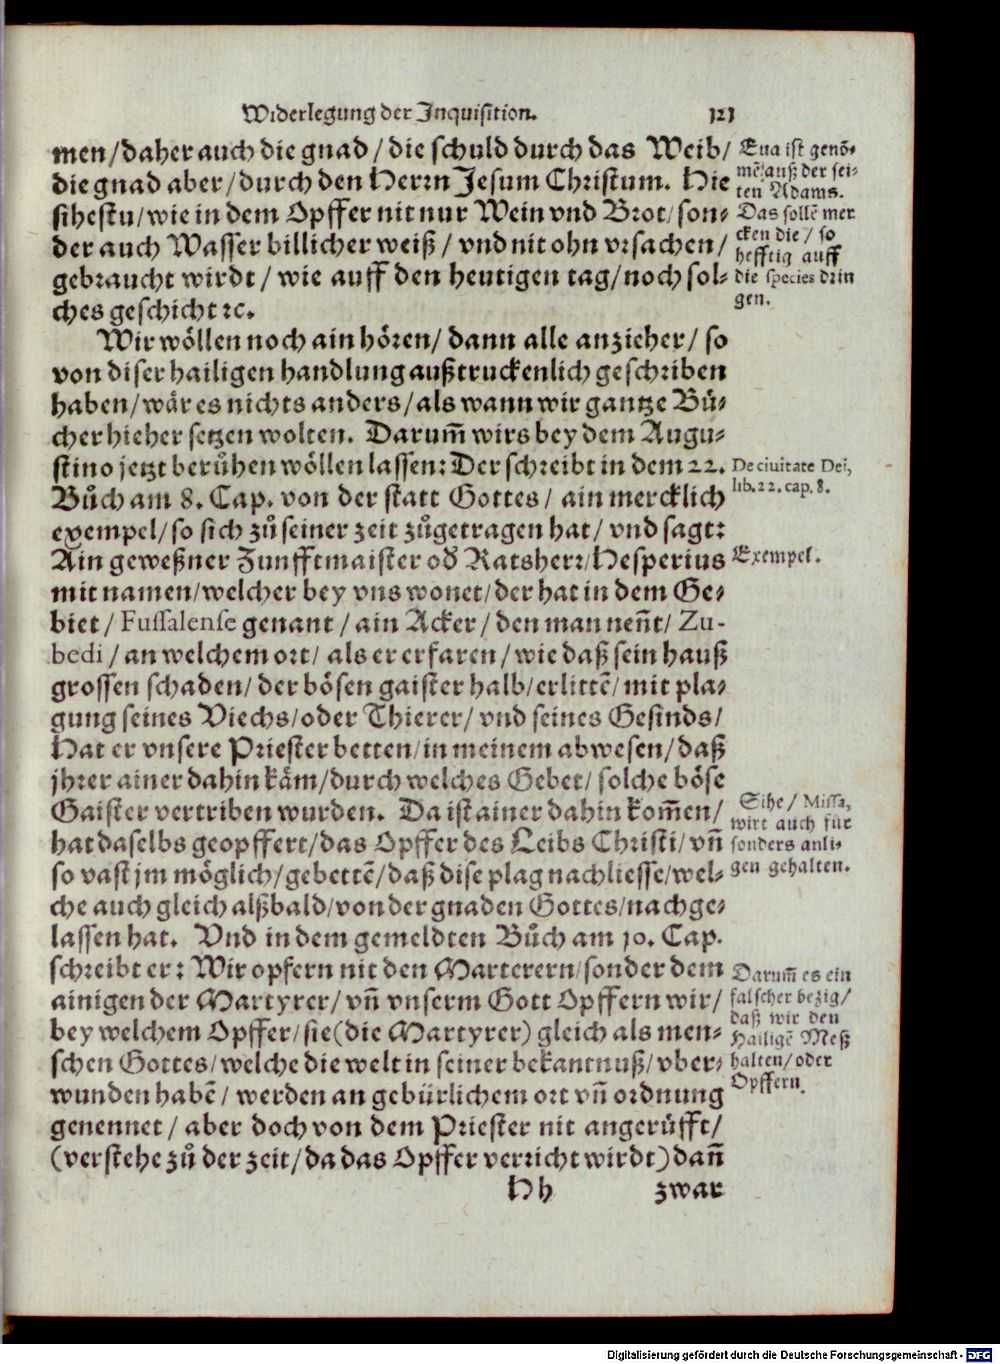 Widerlegung der Inquisition. 121
men/daher auch die gnad/die schuld durch das Weib/
die gnad aber/durch den Herrn Jesum Christum. Hie
sihestu/wie in dem Opffer nit nur Wein vnd Brot/son-
der auch Wasser billicher weiß/vnd nit ohn vrsachen/
gebraucht wirdt/wie auff den heutigen tag/noch sol-
ches geschicht ꝛc.
Eua ist genõ-
mẽ/auß der sei-
ten Adams.
Das sollẽ mer
cken die/so
hefftig auff
die species drin
gen.
Wir wöllen noch ain hören/dann alle anzieher/so
von diser hailigen handlung außtruckenlich geschriben
haben/wär es nichts anders/als wann wir gantze Bů-
cher hieher setzen wolten. Darum̃ wirs bey dem Augu-
stino jetzt berůhen wöllen lassen: Der schreibt in dem 22.
Bůch am 8. Cap. von der statt Gottes/ain mercklich
exempel/so sich zů seiner zeit zůgetragen hat/vnd sagt:
De ciuitate Dei,
lib. 22. cap. 8.
Ain geweßner Zunfftmaister oď Ratsherr/Hesperius
mit namen/welcher bey vns wonet/der hat in dem Ge-
biet/Fussalense genant/ain Acker/den man neñt/Zu-
bedi/an welchem ort/als er erfaren/wie daß sein hauß
grossen schaden/der bösen gaister halb/erlittẽ/mit pla-
gung seines Viechs/oder Thierer/vnd seines Gesinds/
Hat er vnsere Priester betten/in meinem abwesen/daß
jhrer ainer dahin käm/durch welches Gebet/solche böse
Gaister vertriben wurden. Da ist ainer dahin kom̃en/
hat daselbs geopffert/das Opffer des Leibs Christi/vñ
so vast jm möglich/gebettẽ/daß dise plag nachliesse/wel-
che auch gleich alßbald/von der gnaden Gottes/nachge-
lassen hat. Vnd in dem gemeldten Bůch am 10. Cap.
Exempel.
Sihe/Missa,
wirt auch für
sonders anli-
gen gehalten.
schreibt er: Wir opfern nit den Marterern/sonder dem
ainigen der Martyrer/vñ vnserm Gott Opffern wir/
bey welchem Opffer/sie (die Martyrer) gleich als men-
schen Gottes/welche die welt in seiner bekantnuß/vber-
wunden habẽ/werden an gebürlichem ort vñ ordnung
genennet/aber doch von dem Priester nit angerüfft/
(verstehe zů der zeit/da das Opffer verricht wirdt) dañ
Darum̃ es ein
falscher bezig/
daß wir den
Hailigẽ Meß
halten/oder
Opffern.
Hh zwar
Digitalisierung gefördert durch die Deutsche Forschungsgemeinschaft - DFG